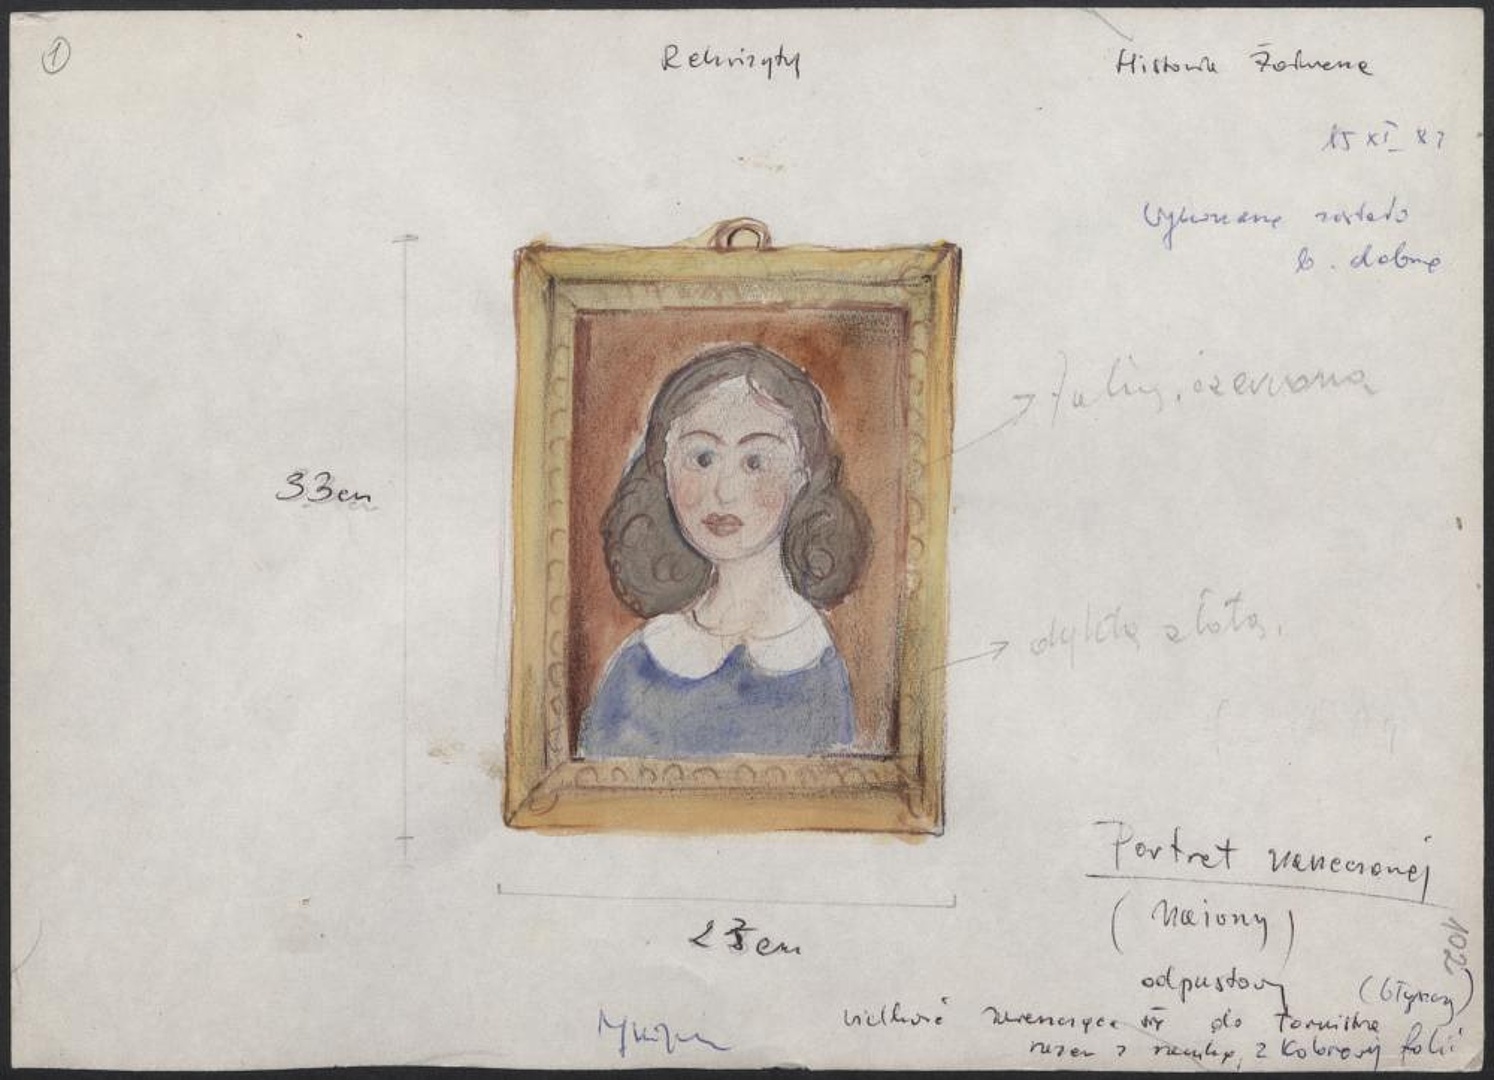 1
Rekwizyty
Historia Żołnierza
15 XI 8
Wykonane zostało
b. dobrze
33cm
folią, czerwoną
dykta złota.
25cm
Portret narzeczonej
(naiwny)
odpustowy
(błyszczy)
102
wielkość mieszcząca się do tornistra
razem z z kolorowej folii